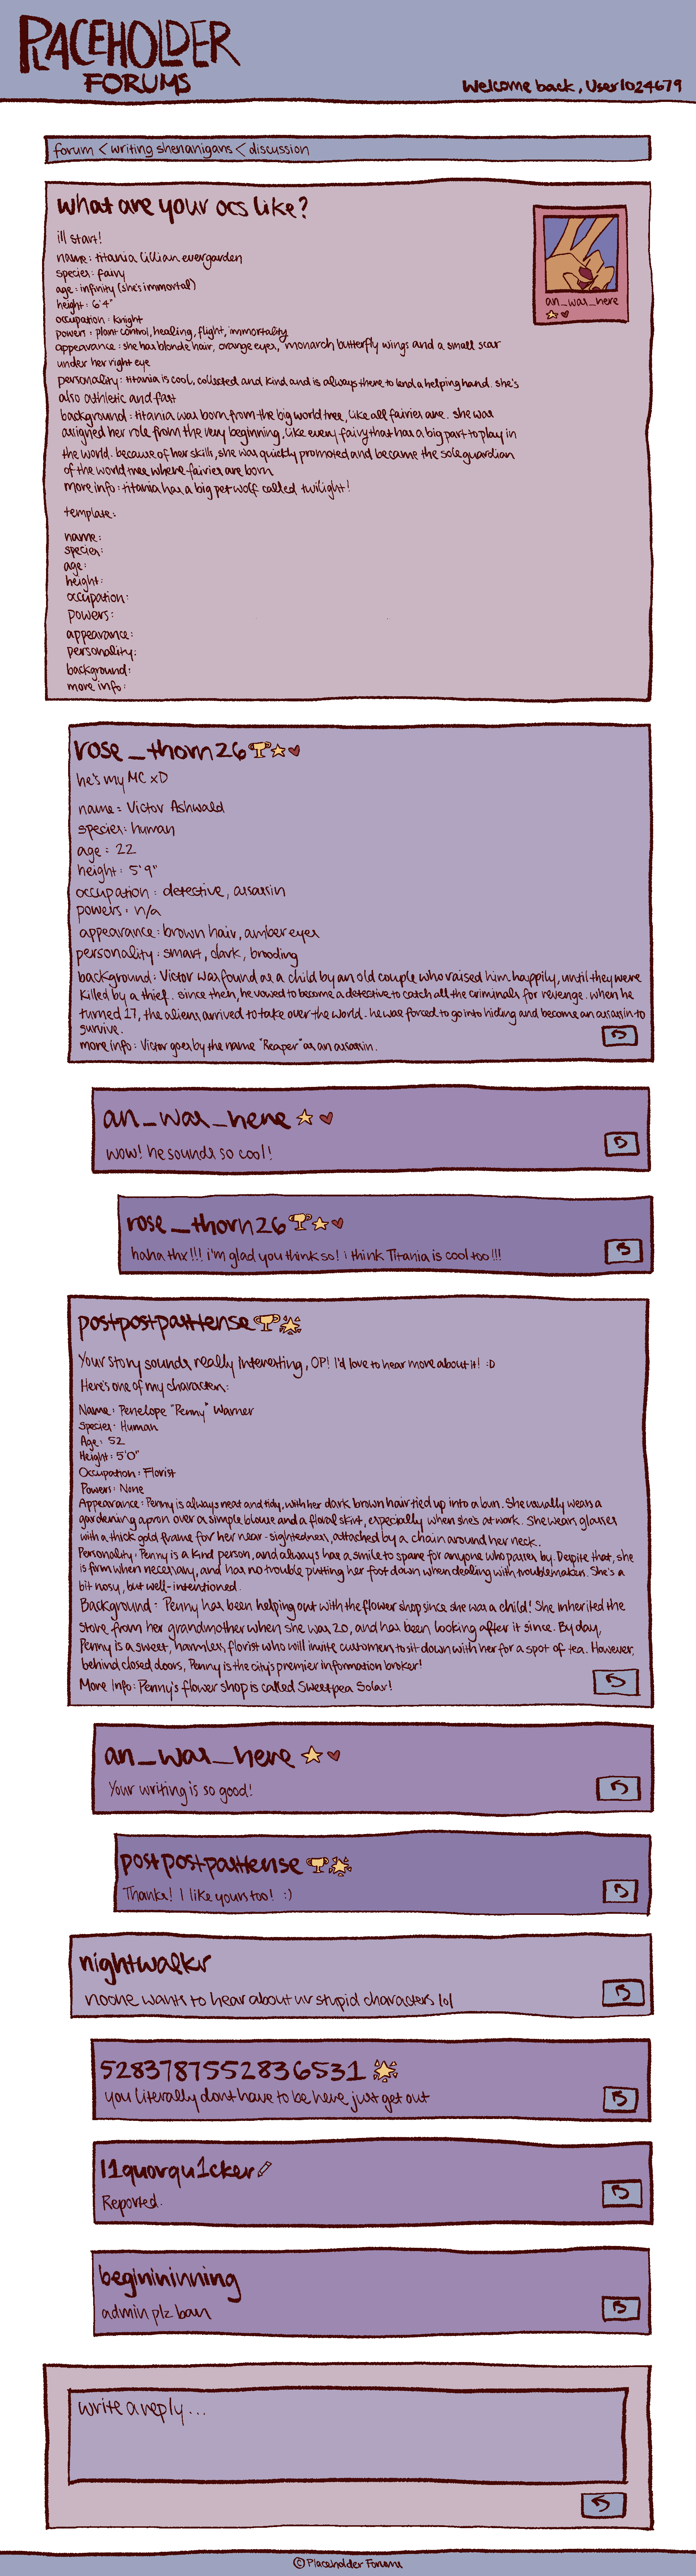 PLACEHOLDER
FORUMS
Welcome back, User1024679
forum < writing shenanigans < discussion
what are your ocs like?
ill start!
name: titania lillian evergarden
species: fairy
age: infinity (she's immortal)
height: 6'4"
occupation: knight
powers: plant control, healing, flight, immortality
appearance: she has blonde hair, orange eyes, monarch butterfly wings and a small scar
under her right eye
personality: titania is cool, collected and kind and is always there to lend a helping hand. she's
also athletic and fast
background: titania was born from the big world tree, like all fairies are. she was
assigned her role from the very beginning, like every fairy that has a big part to play in
the world. because of her skills, she was quickly promoted and became the sole guardian
of the world tree where fairies are born
more info: titania has a big pet wolf called twilight!
an_was_here
template:
name:
species:
age:
height:
occupation:
powers:
appearance:
personality:
background:
more info:
rose_thorn26
he's my MC xD
name: Victor Ashwald
species: human
age: 22
height: 5'9"
occupation: detective, assassin
powers: n/a
appearance: brown hair, amber eyes
personality: smart, dark, brooding
background: Victor was found as a child by an old couple who raised him happily, until they were
killed by a thief. since then, he vowed to become a detective to catch all the criminals for revenge. when he
turned 17, the aliens arrived to take over the world. he was forced to go into hiding and become an assassin to
survive.
more info: Victor goes by the name "Reaper" as an assassin.
an_was_here
wow! he sounds so cool!
rose_thorn26
haha thx!!! i'm glad you think so! i think Titania is cool too!!!
postpostpasttense
Your story sounds really interesting, OP! I'd love to hear more about it! :D
Here's one of my characters:
Name: Penelope "Penny" Warner
Species: Human
Age: 52
Height: 5'0"
Occupation: Florist
Powers: None
Appearance: Penny is always neat and tidy, with her dark brown hair tied up into a bun. She usually wears a
gardening apron over a simple blouse and a floral skirt, especially when she's at work. She wears glasses
with a thick gold frame for her near-sightedness, attached by a chain around her neck.
Personality: Penny is a kind person, and always has a smile to spare for anyone who passes by. Despite that, she
is firm when necessary, and has no trouble putting her foot down when dealing with troublemakers. She's a
bit nosy, but well-intentioned.
Background: Penny has been helping out with the flower shop since she was a child! She inherited the
store from her grandmother when she was 20, and has been looking after it since. By day,
Penny is a sweet, harmless florist who will invite customers to sit down with her for a spot of tea. However,
behind closed doors, Penny is the city's premier information broker!
More Info: Penny's flower shop is called Sweetpea Solar!
an_was_here
Your writing is so good!
postpostpasttense
Thanks! I like yours too! :)
nightwalkr
noone wants to hear about ur stupid characters lol
5283787552836531
you literally dont have to be here just get out
l1quorqu1cker
Reported.
beginininning
admin plz ban
write a reply...
© Placeholder Forums